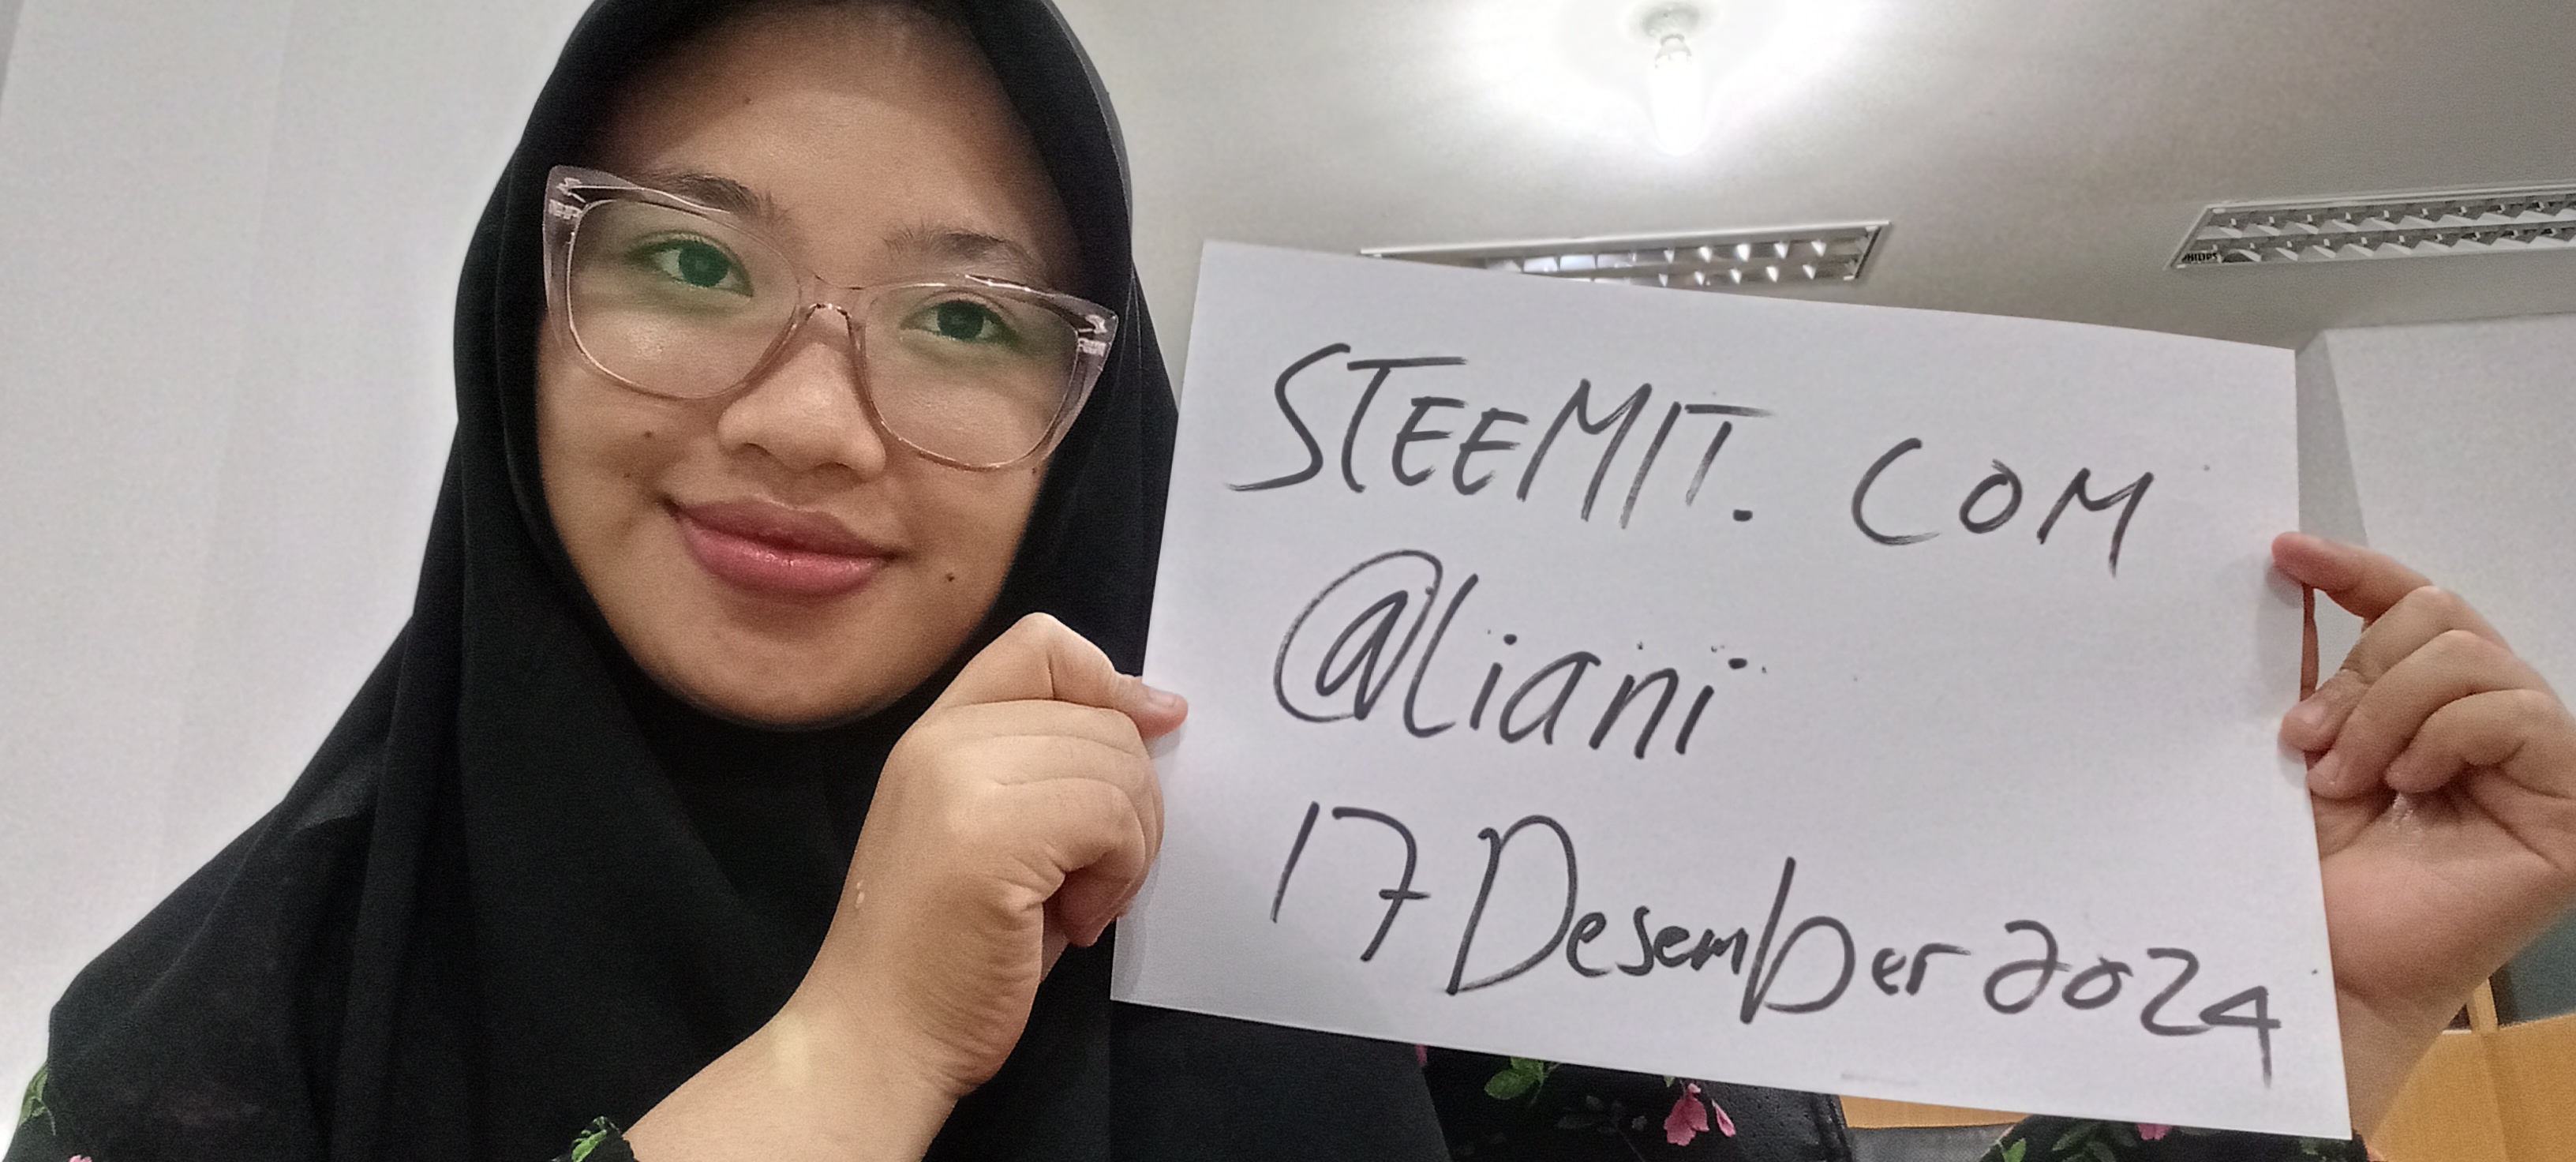 PHILIPS
STEEMIT. COM
@liani
17 Desember 2024